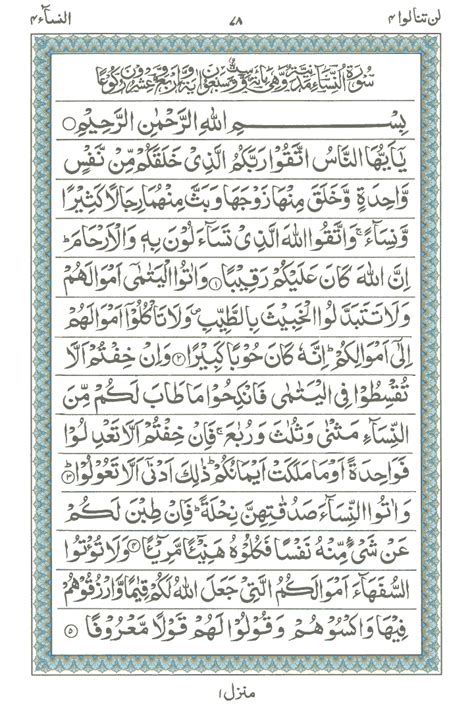 لن تنالوا ٤
٧٨
النسآء ٤
سُوْرَةُ النِّسَآءِ مَدَنِيَّةٌ وَّهِيَ مِائَةٌ وَّسِتٌّ وَّسَبْعُوْنَ اٰيَةً وَّاَرْبَعٌ وَّعِشْرُوْنَ رُكُوْعًا
بِسْمِ اللهِ الرَّحْمٰنِ الرَّحِيْمِ
يٰۤاَيُّهَا النَّاسُ اتَّقُوْا رَبَّكُمُ الَّذِيْ خَلَقَكُمْ مِّنْ نَّفْسٍ
وَّاحِدَةٍ وَّخَلَقَ مِنْهَا زَوْجَهَا وَبَثَّ مِنْهُمَا رِجَالًا كَثِيْرًا
وَّنِسَآءً ۚ وَاتَّقُوا اللهَ الَّذِيْ تَسَآءَلُوْنَ بِهٖ وَالْاَرْحَامَ ؕ
اِنَّ اللهَ كَانَ عَلَيْكُمْ رَقِيْبًا ۝۱ وَاٰتُوا الْيَتٰمٰۤى اَمْوَالَهُمْ
وَلَا تَتَبَدَّلُوا الْخَبِيْثَ بِالطَّيِّبِ ۪ وَلَا تَاْكُلُوْۤا اَمْوَالَهُمْ
اِلٰۤى اَمْوَالِكُمْ ؕ اِنَّهٗ كَانَ حُوْبًا كَبِيْرًا ۝۲ وَاِنْ خِفْتُمْ اَلَّا
تُقْسِطُوْا فِي الْيَتٰمٰى فَانْكِحُوْا مَا طَابَ لَكُمْ مِّنَ
النِّسَآءِ مَثْنٰى وَثُلٰثَ وَرُبٰعَ ۚ فَاِنْ خِفْتُمْ اَلَّا تَعْدِلُوْا
فَوَاحِدَةً اَوْ مَا مَلَكَتْ اَيْمَانُكُمْ ؕ ذٰلِكَ اَدْنٰۤى اَلَّا تَعُوْلُوْا ۝۳
وَاٰتُوا النِّسَآءَ صَدُقٰتِهِنَّ نِحْلَةً ؕ فَاِنْ طِبْنَ لَكُمْ
عَنْ شَيْءٍ مِّنْهُ نَفْسًا فَكُلُوْهُ هَنِيْٓـًٔا مَّرِيْٓـًٔا ۝۴ وَلَا تُؤْتُوا
السُّفَهَآءَ اَمْوَالَكُمُ الَّتِيْ جَعَلَ اللهُ لَكُمْ قِيٰمًا وَّارْزُقُوْهُمْ
فِيْهَا وَاكْسُوْهُمْ وَقُوْلُوْا لَهُمْ قَوْلًا مَّعْرُوْفًا ۝۵
منزل ١